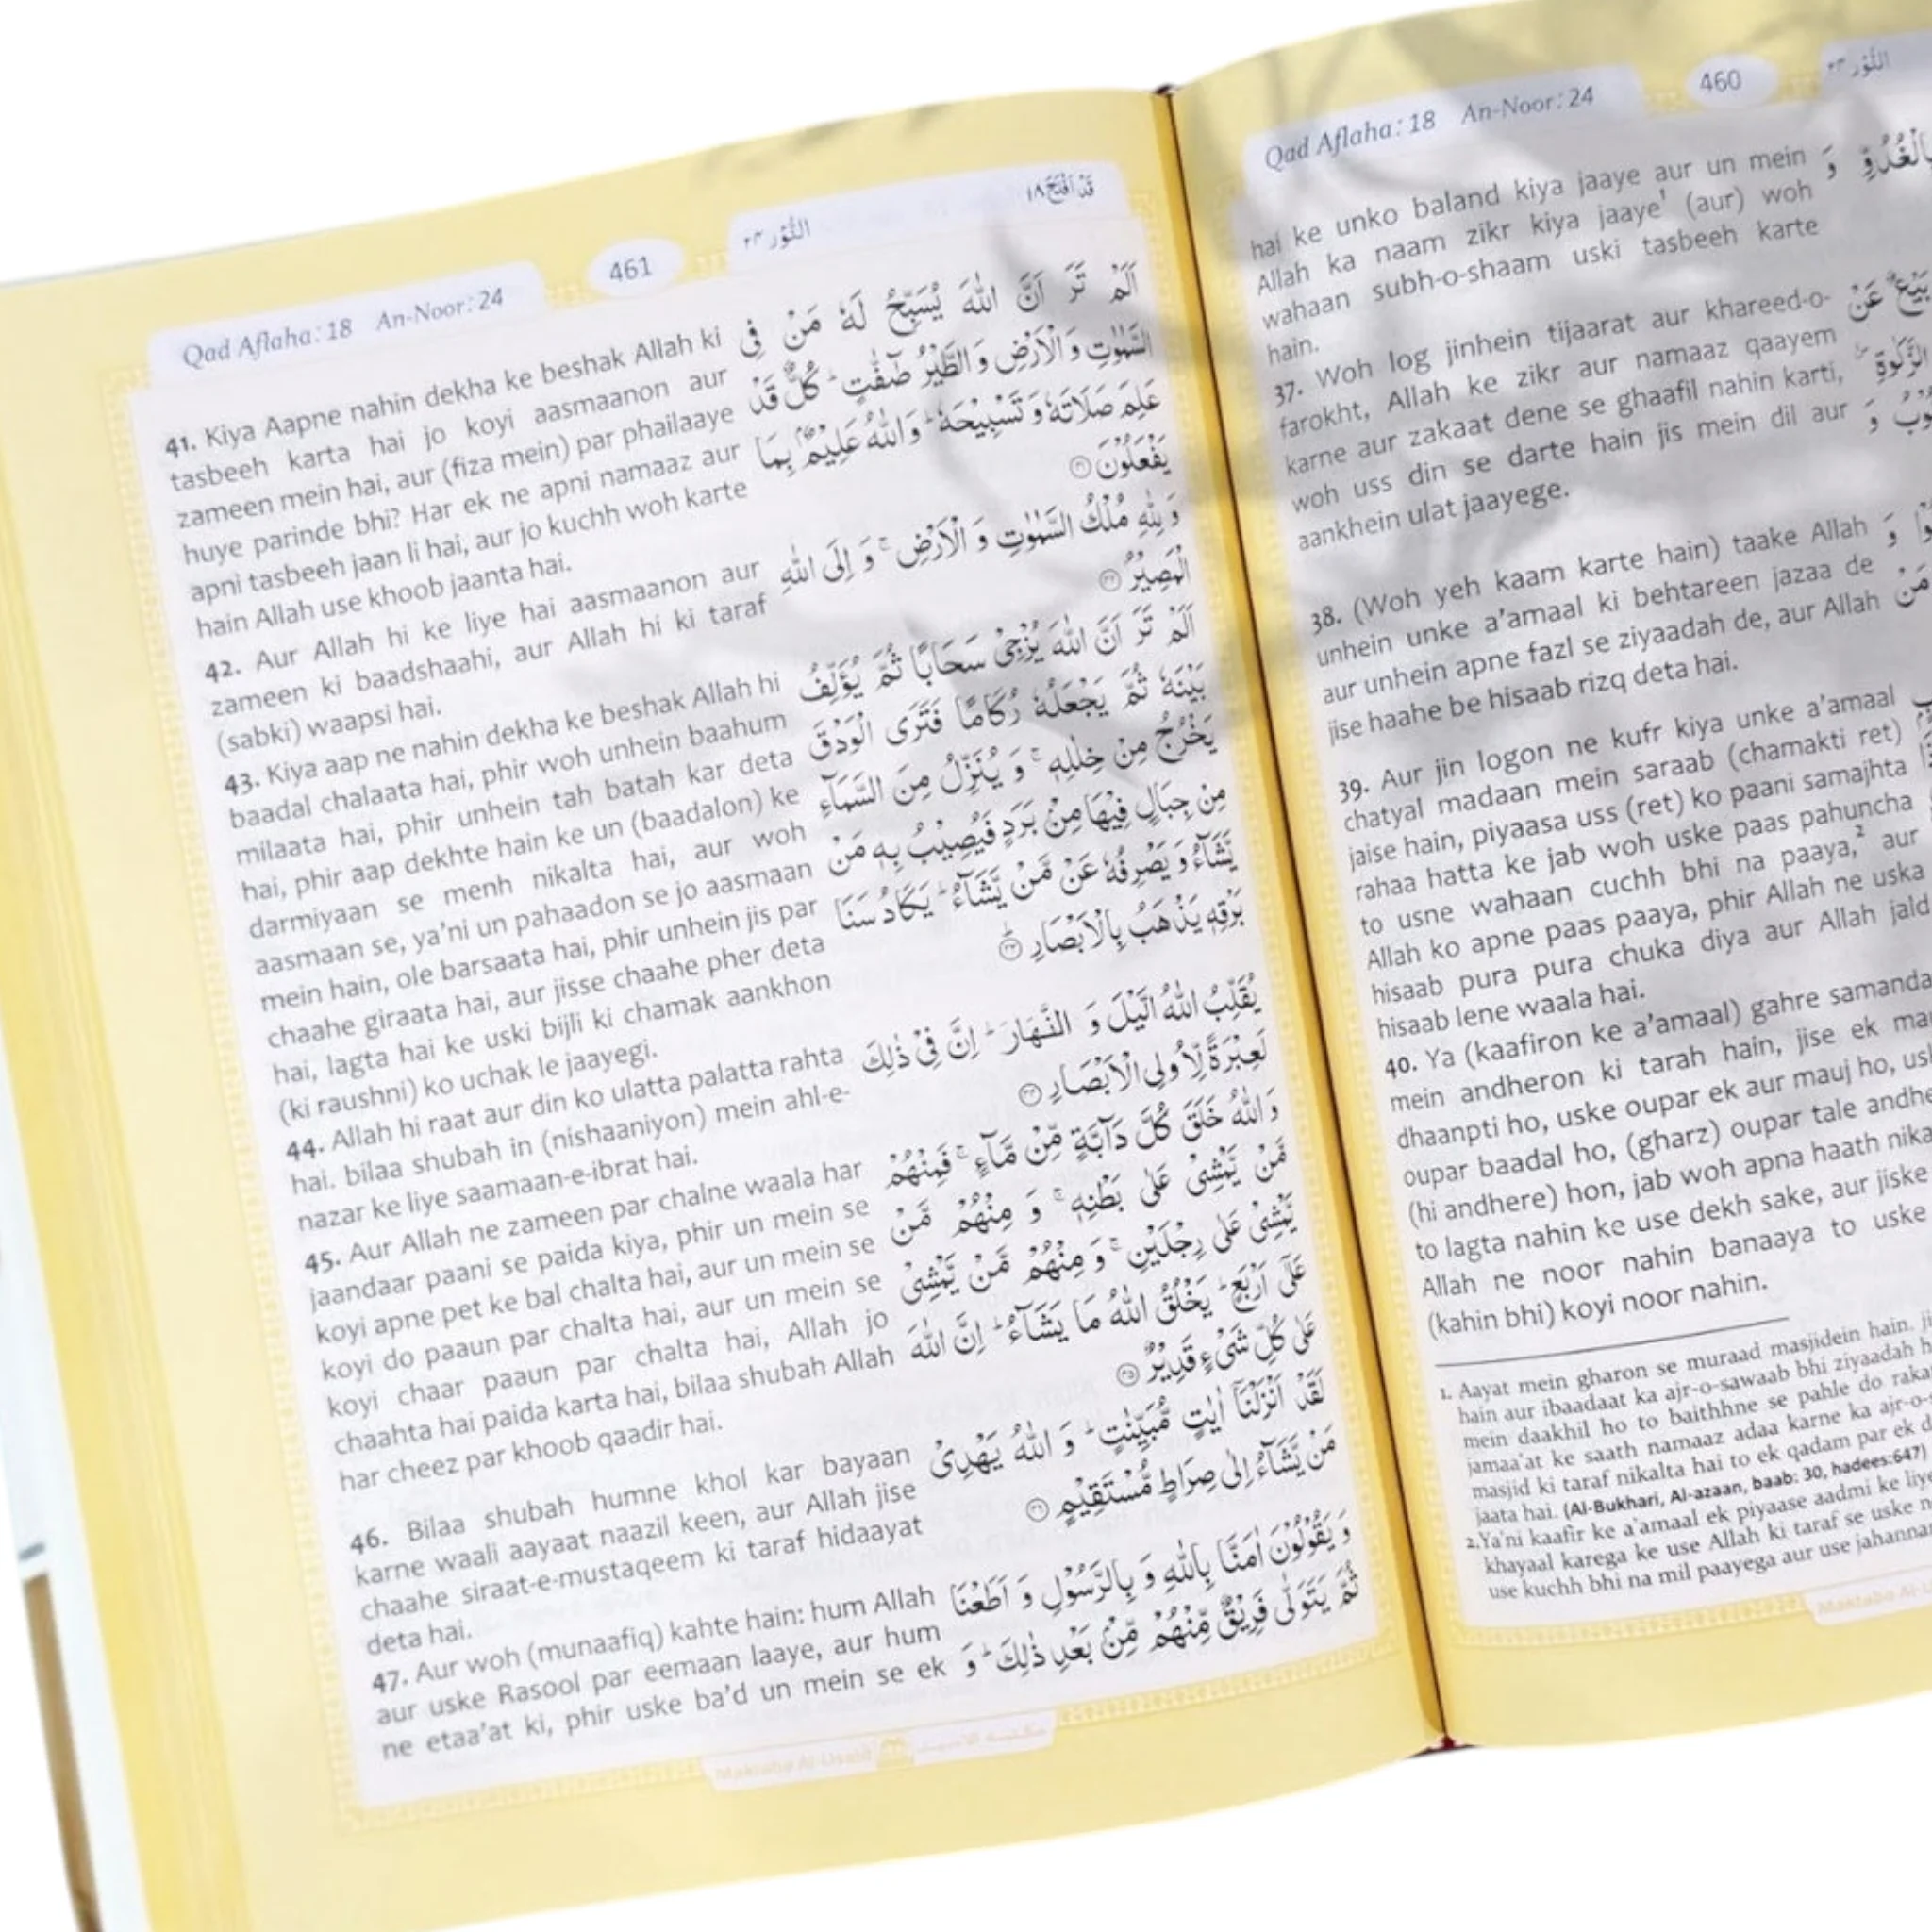 Qad Aflaha: 18 An-Noor: 24
460
النُّوْر ٢٤
hai ke unko baland kiya jaaye aur un mein
Allah ka naam zikr kiya jaaye¹ (aur) woh
wahaan subh-o-shaam uski tasbeeh karte
hain.
37. Woh log jinhein tijaarat aur khareed-o-
farokht, Allah ke zikr aur namaaz qaayem
karne aur zakaat dene se ghaafil nahin karti,
woh uss din se darte hain jis mein dil aur
aankhein ulat jaayege.
38. (Woh yeh kaam karte hain) taake Allah
unhein unke a'amaal ki behtareen jazaa de
aur unhein apne fazl se ziyaadah de, aur Allah
jise haahe be hisaab rizq deta hai.
39. Aur jin logon ne kufr kiya unke a'amaal
chatyal madaan mein saraab (chamakti ret)
jaise hain, piyaasa uss (ret) ko paani samajhta
rahaa hatta ke jab woh uske paas pahuncha
to usne wahaan cuchh bhi na paaya,² aur
Allah ko apne paas paaya, phir Allah ne uska
hisaab pura pura chuka diya aur Allah jald
hisaab lene waala hai.
40. Ya (kaafiron ke a'amaal) gahre
mein andheron ki tarah hain, jise ek
dhaanpti ho, uske oupar ek aur mauj ho,
oupar baadal ho, (gharz) oupar tale
(hi andhere) hon, jab woh apna haath
to lagta nahin ke use dekh sake, aur jiske
Allah ne noor nahin banaaya to uske
(kahin bhi) koyi noor nahin.
وَ
بَيْعٌ عَنْ
الزَّكٰوةِ
وَ
وَ
مَنْ
1. Aayat mein gharon se muraad masjidein hain.
hain aur ibaadaat ka ajr-o-sawaab bhi ziyaadah
mein daakhil ho to baithhne se pahle do
jamaa'at ke saath namaaz adaa karne ka
masjid ki taraf nikalta hai to ek qadam par ek
jaata hai. (Al-Bukhari, Al-azaan, baab: 30, hadees:647)
2. Ya'ni kaafir ke a'amaal ek piyaase aadmi ke
khayaal karega ke use Allah ki taraf se uske
use kuchh bhi na mil paayega aur use
Qad Aflaha: 18 An-Noor: 24
461
النُّوْر ٢٤
قَدْ اَفْلَحَ ١٨
41. Kiya Aapne nahin dekha ke beshak Allah ki
tasbeeh karta hai jo koyi aasmaanon aur
zameen mein hai, aur (fiza mein) par phailaaye
huye parinde bhi? Har ek ne apni namaaz aur
apni tasbeeh jaan li hai, aur jo kuchh woh karte
hain Allah use khoob jaanta hai.
42. Aur Allah hi ke liye hai aasmaanon aur
zameen ki baadshaahi, aur Allah hi ki taraf
(sabki) waapsi hai.
43. Kiya aap ne nahin dekha ke beshak Allah hi
baadal chalaata hai, phir woh unhein baahum
milaata hai, phir unhein tah batah kar deta
hai, phir aap dekhte hain ke un (baadalon) ke
darmiyaan se menh nikalta hai, aur woh
aasmaan se, ya'ni un pahaadon se jo aasmaan
mein hain, ole barsaata hai, phir unhein jis par
chaahe giraata hai, aur jisse chaahe pher deta
hai, lagta hai ke uski bijli ki chamak aankhon
(ki raushni) ko uchak le jaayegi.
44. Allah hi raat aur din ko ulatta palatta rahta
hai. bilaa shubah in (nishaaniyon) mein ahl-e-
nazar ke liye saamaan-e-ibrat hai.
45. Aur Allah ne zameen par chalne waala har
jaandaar paani se paida kiya, phir un mein se
koyi apne pet ke bal chalta hai, aur un mein se
koyi do paaun par chalta hai, aur un mein se
koyi chaar paaun par chalta hai, Allah jo
chaahta hai paida karta hai, bilaa shubah Allah
har cheez par khoob qaadir hai.
46. Bilaa shubah humne khol kar bayaan
karne waali aayaat naazil keen, aur Allah jise
chaahe siraat-e-mustaqeem ki taraf hidaayat
deta hai.
47. Aur woh (munaafiq) kahte hain: hum Allah
aur uske Rasool par eemaan laaye, aur hum
ne etaa'at ki, phir uske ba'd un mein se ek
اَلَمْ تَرَ اَنَّ اللّٰهَ يُسَبِّحُ لَهٗ مَنْ فِي
السَّمٰوٰتِ وَ الْاَرْضِ وَ الطَّيْرُ صٰٓفّٰتٍ ؕ كُلٌّ قَدْ
عَلِمَ صَلَاتَهٗ وَ تَسْبِيْحَهٗ ؕ وَ اللّٰهُ عَلِيْمٌۢ بِمَا
يَفْعَلُوْنَ ۝٤١
وَ لِلّٰهِ مُلْكُ السَّمٰوٰتِ وَ الْاَرْضِ ۚ وَ اِلَى اللّٰهِ
الْمَصِيْرُ ۝٤٢
اَلَمْ تَرَ اَنَّ اللّٰهَ يُزْجِيْ سَحَابًا ثُمَّ يُؤَلِّفُ
بَيْنَهٗ ثُمَّ يَجْعَلُهٗ رُكَامًا فَتَرَى الْوَدْقَ
يَخْرُجُ مِنْ خِلٰلِهٖ ۚ وَ يُنَزِّلُ مِنَ السَّمَآءِ
مِنْ جِبَالٍ فِيْهَا مِنْۢ بَرَدٍ فَيُصِيْبُ بِهٖ مَنْ
يَّشَآءُ وَ يَصْرِفُهٗ عَنْ مَّنْ يَّشَآءُ ؕ يَكَادُ سَنَا
بَرْقِهٖ يَذْهَبُ بِالْاَبْصَارِ ۝٤٣
يُقَلِّبُ اللّٰهُ الَّيْلَ وَ النَّهَارَ ؕ اِنَّ فِيْ ذٰلِكَ
لَعِبْرَةً لِّاُولِي الْاَبْصَارِ ۝٤٤
وَ اللّٰهُ خَلَقَ كُلَّ دَآبَّةٍ مِّنْ مَّآءٍ ۚ فَمِنْهُمْ
مَّنْ يَّمْشِيْ عَلٰى بَطْنِهٖ ۚ وَ مِنْهُمْ مَّنْ
يَّمْشِيْ عَلٰى رِجْلَيْنِ ۚ وَ مِنْهُمْ مَّنْ يَّمْشِيْ
عَلٰۤى اَرْبَعٍ ؕ يَخْلُقُ اللّٰهُ مَا يَشَآءُ ؕ اِنَّ اللّٰهَ
عَلٰى كُلِّ شَيْءٍ قَدِيْرٌ ۝٤٥
لَقَدْ اَنْزَلْنَاۤ اٰيٰتٍ مُّبَيِّنٰتٍ ؕ وَ اللّٰهُ يَهْدِيْ
مَنْ يَّشَآءُ اِلٰى صِرَاطٍ مُّسْتَقِيْمٍ ۝٤٦
وَ يَقُوْلُوْنَ اٰمَنَّا بِاللّٰهِ وَ بِالرَّسُوْلِ وَ اَطَعْنَا
ثُمَّ يَتَوَلّٰى فَرِيْقٌ مِّنْهُمْ مِّنْۢ بَعْدِ ذٰلِكَ ؕ وَ
Maktaba Al-Usaid